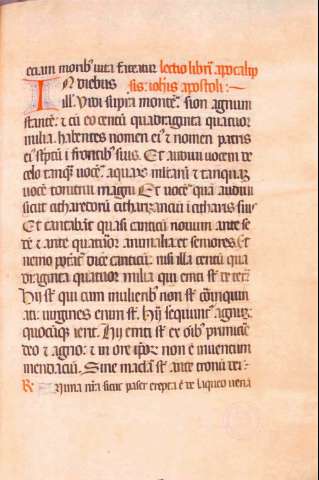 etiam moribus vita fateatur lectio libri apocalip
In diebus sis iohis apostoli:
ill. Vidi supra monte. sion agnum
stante: & cu eo centu quadraginta quatuor
milia. habentes nomen ei & nomen patris
ei scptu i frontib suis. Et audivi vocem de
celo tanq voce aquar multaru & tanqua
voce tonitrui magni Et voce qua audivi
sicut citharedoru citharizanciu i citharis suis
Et cantabat quasi canticu novum ante se
de & ante quatuor animalia et seniores. Et
nemo poterat dice canticu: nisi illa centu qua
draginta quatuor milia qui empti st de terra
Hij st qui cum mulierib non st coinquin
ati: virgines enim st. Hij sequunt agnu:
quocuq ierit. Hij empti st ex oib primicie
deo & agno: & in ore ipor non e inventum
mendaciu. Sine macla st ante tronu dei:
R Anima nra sicut passer erepta e de laqueo vena